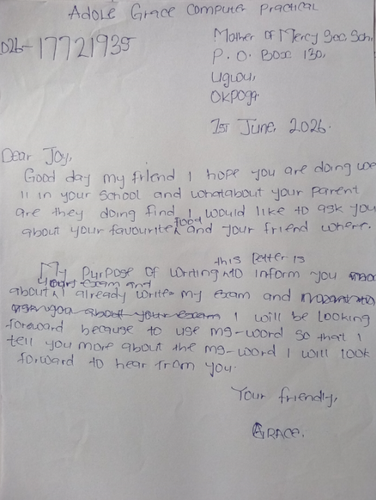 Adole Grace Computer Practical
D26-17721935
Mother of Mercy Sec Sch,
P. O. Box 130,
Ugwu,
Okpoga
1st June, 2026.
Dear Joy,
Good day my friend I hope you are doing we
ll in your school and whatabout your parent
are they doing find, I would like to ask you
about your favourite food and your friend where.
My purpose of writing this letter is to inform you
about your exam and I already write my exam and
about your exam I will be looking
forward because to use ms-word so that I
tell you more about the ms-word I will look
forward to hear from you.
Your friendly,
GRACE.